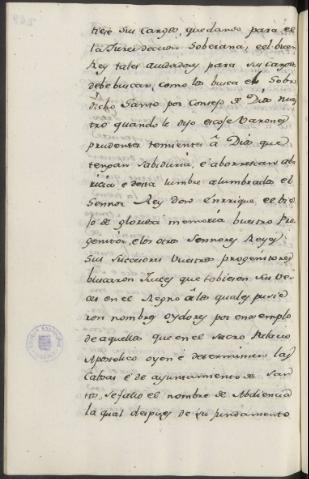 tiese su cargo, quedando para el
la Jurisdiccion Soberana, e el buen
Rey tales ayudadores para su cargo
debe buscar, como los busca el Sobre
dicho Santo por Consejo de Dios nues
tro quando le dijo escoje Varones
prudentes temientes â Dios, que
tengan Sabiduria, é aborrezcan aba
ricia e desta lumbre alumbrados el
Sennor Rey don Enrrique, e el bi
jo de gloriosa memoria buestro Pro
genitor, e los otros Sennores Reyes
sus succesores Vuestros progenitores
buscaron Jueces que tobiesen su ve
ces en el Regno â los quales pusie
ron nombres oydores por en exemplo
de aquellos que en el Sacro Palacio
Apostolico oyen é determinen las
Causas é de ayuntamiento de San
tos, se fallo el nombre de Abdiencia
la qual despues de su fundamento